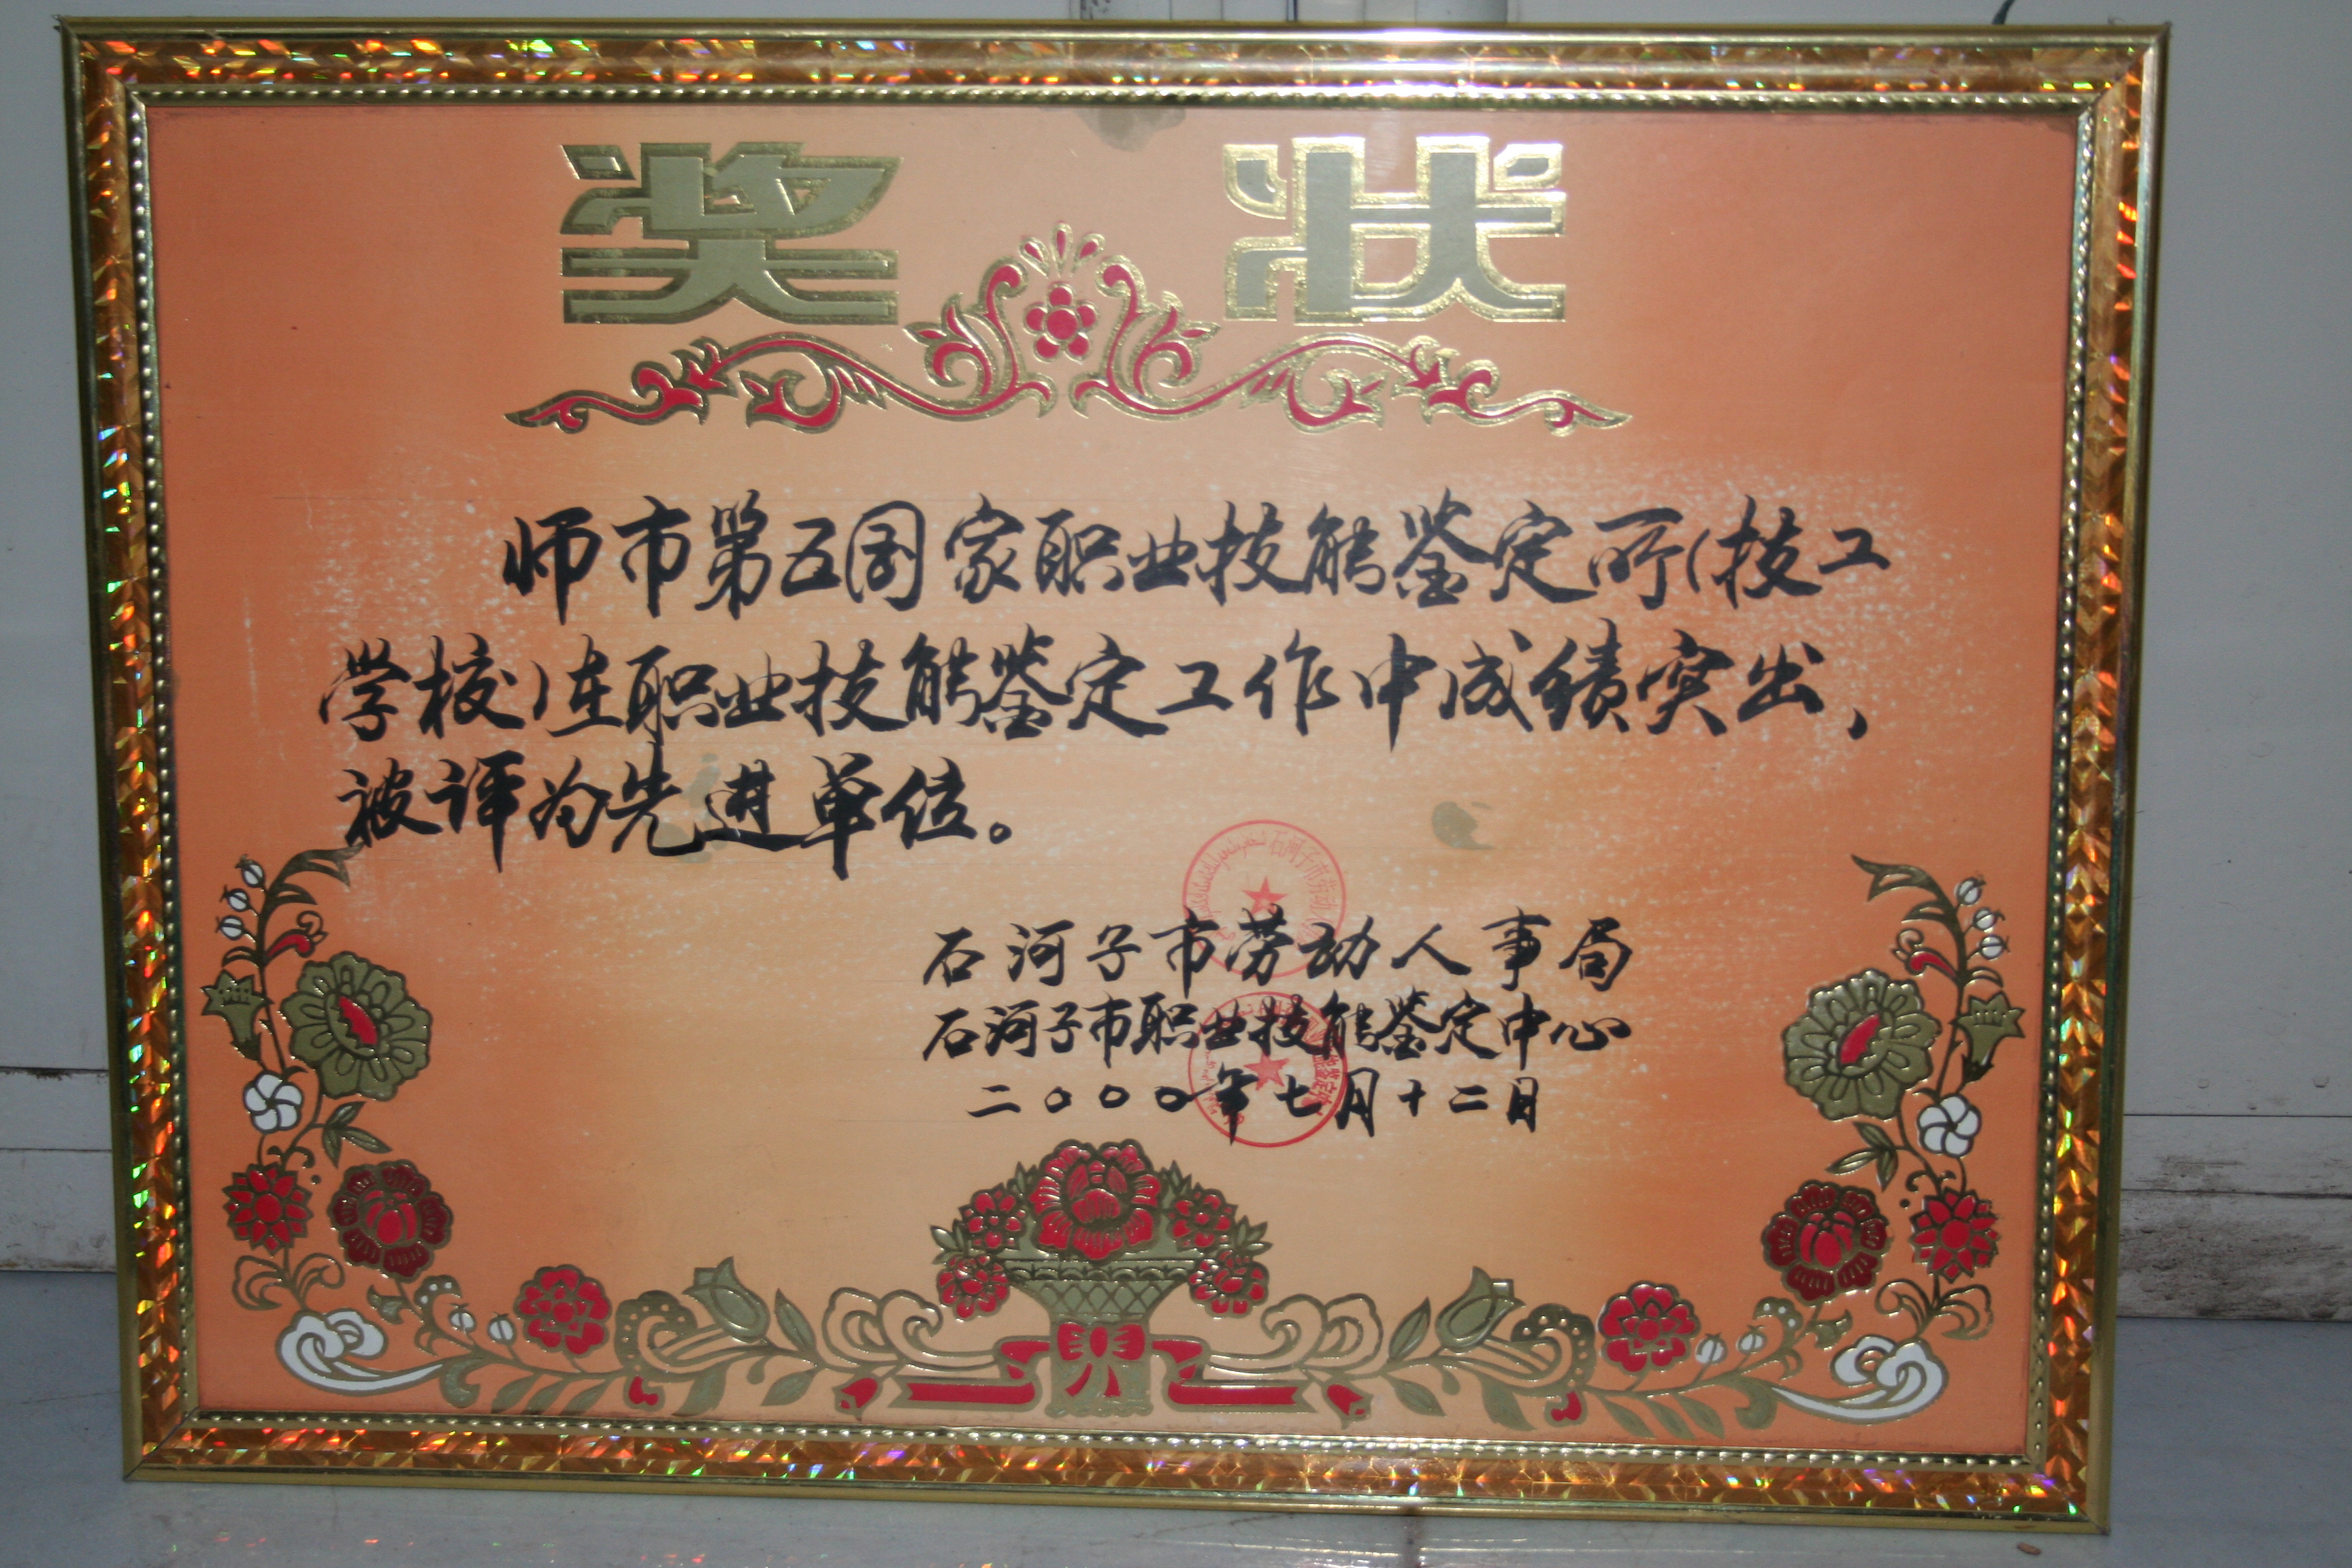 奖状
师市第五国家职业技能鉴定所(技工
学校)在职业技能鉴定工作中成绩突出,
被评为先进单位。
石河子市劳动人事局
石河子市职业技能鉴定中心
二〇〇〇年七月十二日